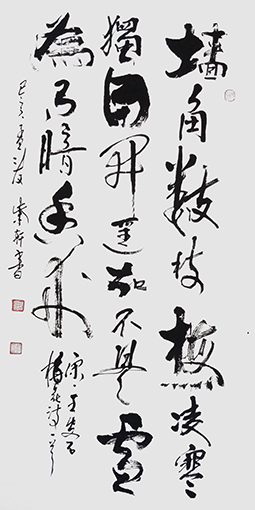 墙角数枝梅凌寒
獨自开遥知不是雪
為有暗香来
宋王安石
梅花诗一首
己亥
書